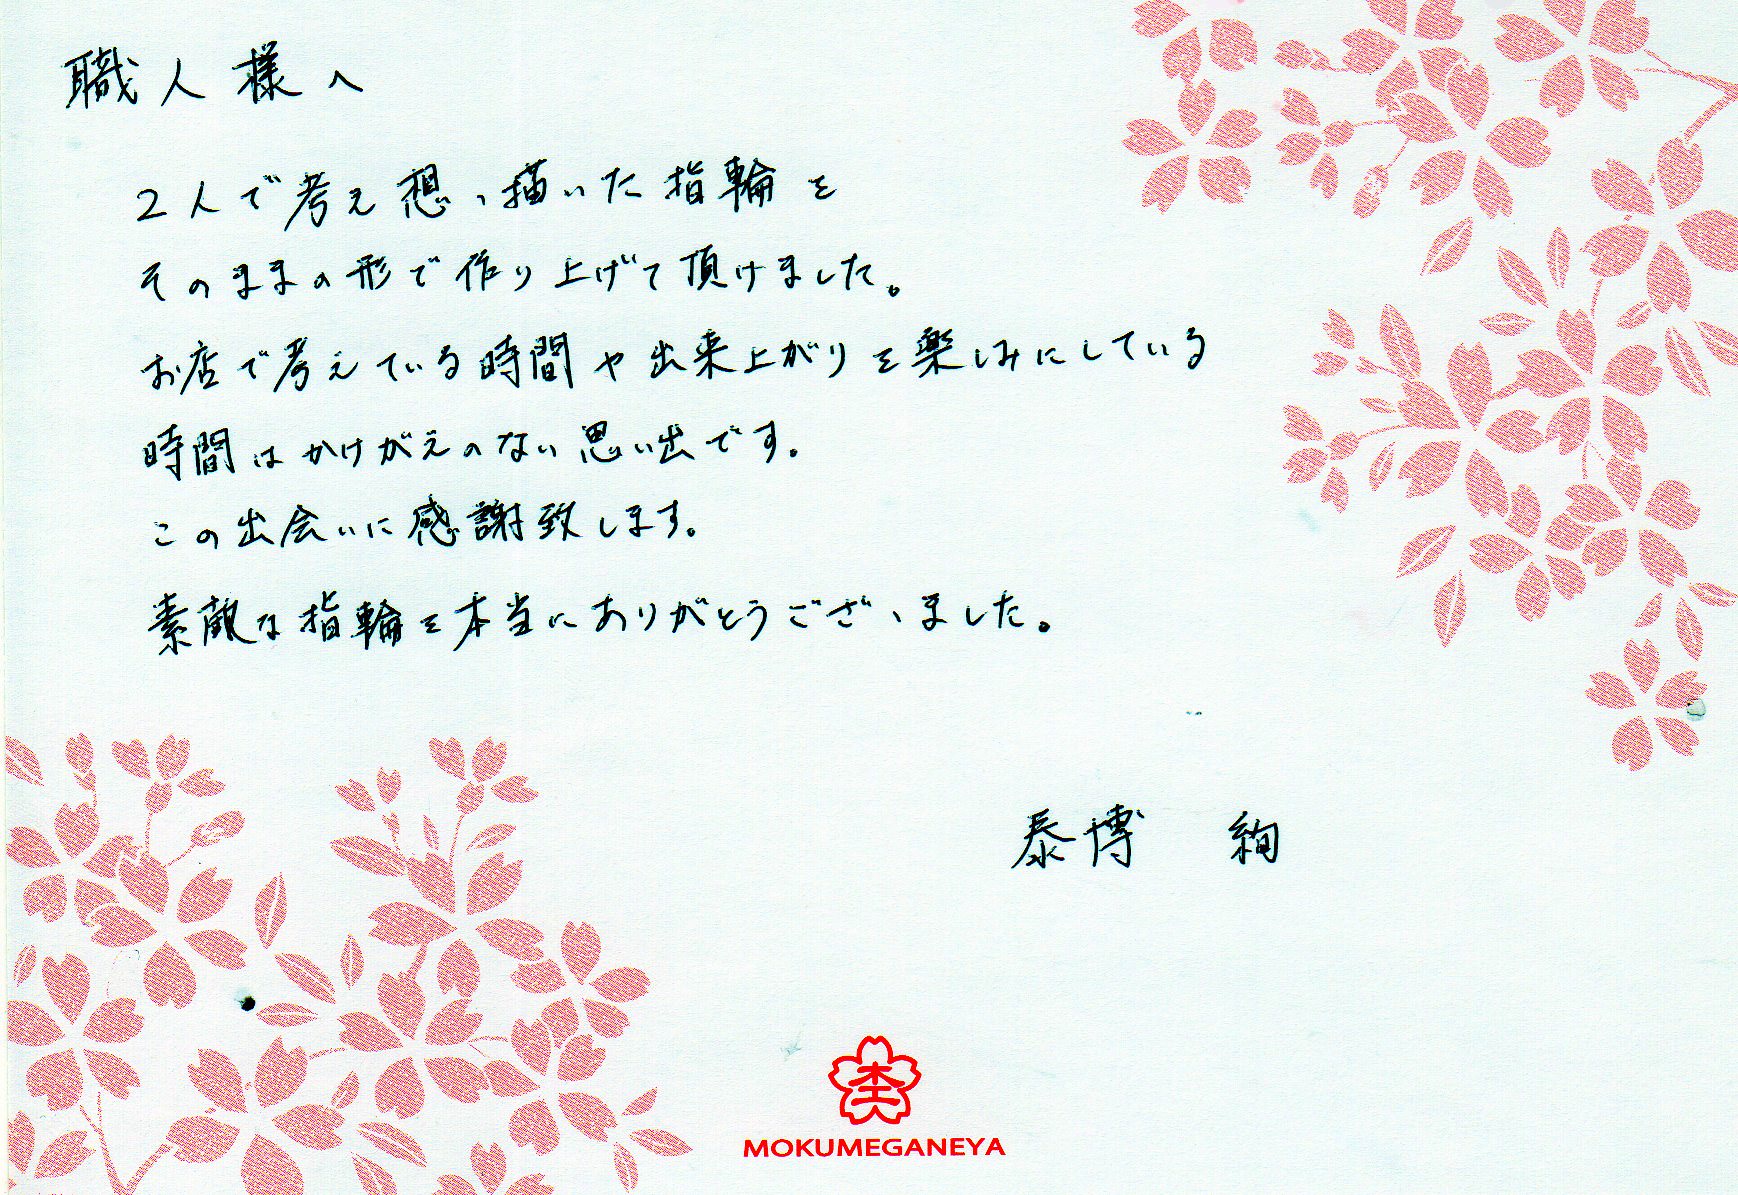 職人様へ
2人で考え想い描いた指輪を
そのままの形で作り上げて頂けました。
お店で考えている時間や出来上がりを楽しみにしている
時間はかけがえのない思い出です。
この出会いに感謝致します。
素敵な指輪を本当にありがとうございました。
泰博 絢
MOKUMEGANEYA